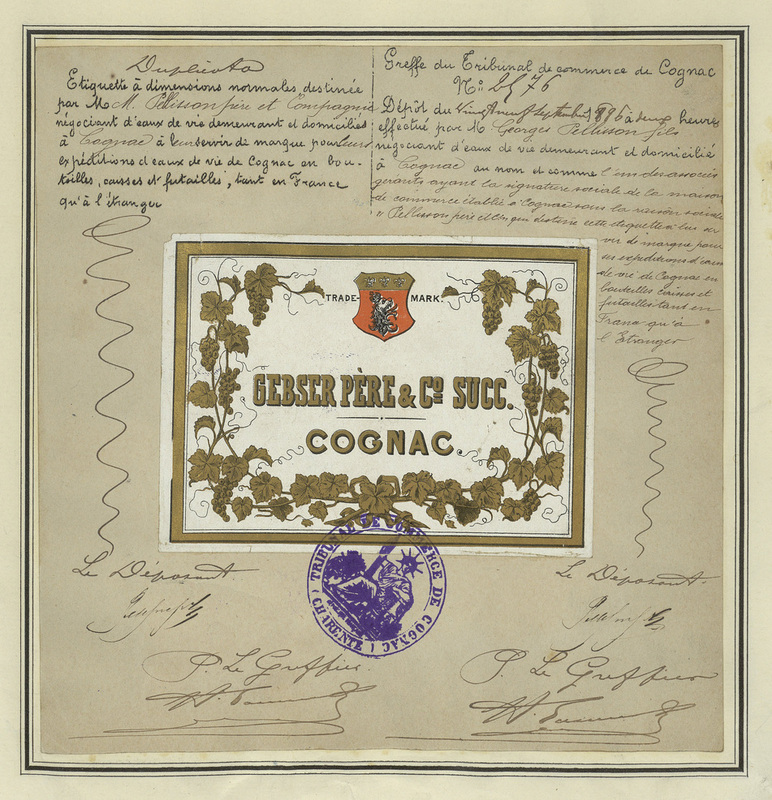 Duplicata
Etiquette à dimensions normales destinée
par M M. Pellisson père et Compagnie
négociant d'eaux de vie demeurant et domiciliés
à Cognac à leur servir de marque pour leurs
expéditions d'eaux de vie de Cognac en bou-
teilles, caisses et futailles, tant en France
qu'à l'étranger
Greffe du Tribunal de commerce de Cognac
N°: 2576
Dépôt du Vingt neuf Septembre 1896 à deux heures
effectué par M. Georges Pellisson fils
négociant d'eaux de vie demeurant et domicilié
à Cognac au nom et comme l'un des associés
gérants ayant la signature sociale de la maison
de commerce établie à Cognac sous la raison sociale
"Pellisson père et Cie, qui destine cette étiquette à lui ser
vir de marque pour
ses expéditions d'eaux
de vie de Cognac en
bouteilles caisses et
futailles tant en
France qu'à
l'Etranger
TRADE-MARK.
GEBSER PÈRE & Co SUCC.
COGNAC.
TRIBUNAL DE COMMERCE DE COGNAC
(CHARENTE)
Le Déposant
Le Déposant
P. Le Greffier
P. Le Greffier